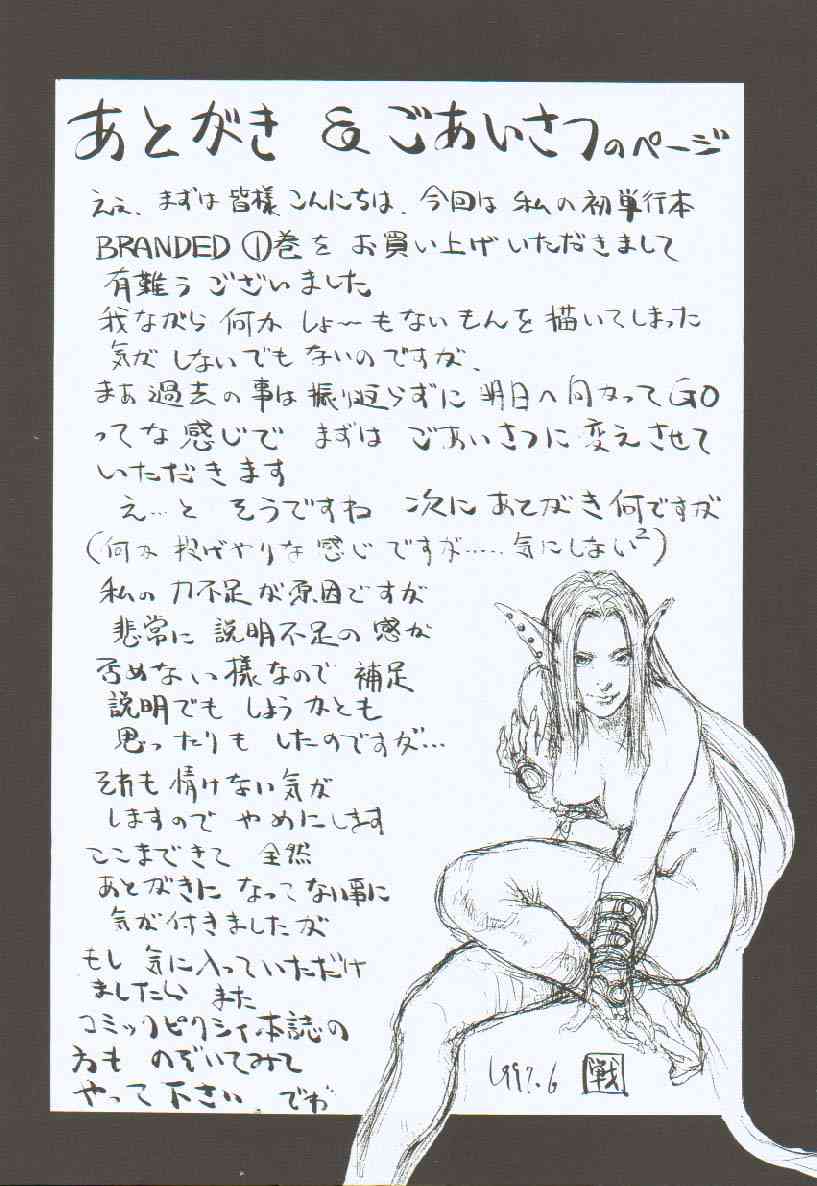 あとがき & ごあいさつのページ
ええ、まずは皆様こんにちは、今回は私の初単行本
BRANDED ①巻をお買い上げいただきまして
有難うございました
我ながら何かしょ〜もないもんを描いてしまった
気がしないでもないのですが、
まあ過去の事は振り返らずに明日へ向かってGO
ってな感じでまずはごあいさつに変えさせて
いただきます
え…と そうですね 次にあとがき何ですが
(何か投げやりな感じですが……気にしない²)
私の力不足が原因ですが
非常に説明不足の感が
否めない様なので補足
説明でもしようかとも
思ったりもしたのですが…
それも情けない気が
しますのでやめにします
ここまできて全然
あとがきになってない事に
気が付きましたが
もし気に入っていただけ
ましたらまた
コミックピクシィ本誌の
方ものぞいてみて
やって下さい でわ
1997.6 戦